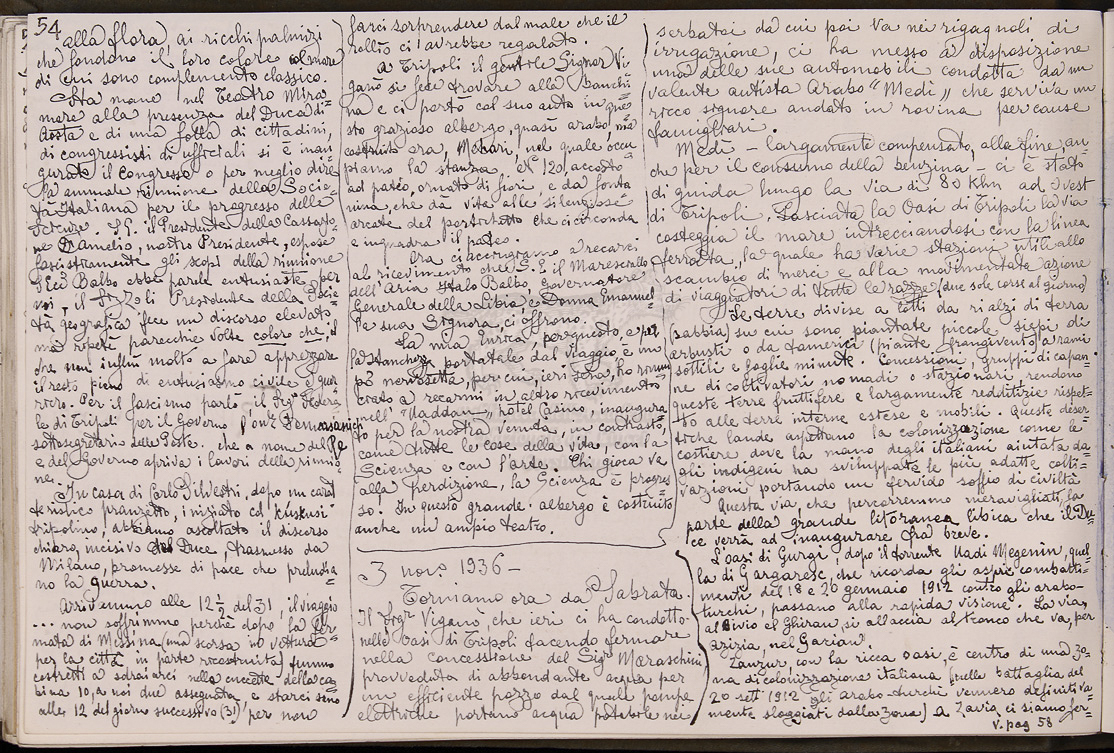 54
alla flora, ai ricchi palmizi
che fondono il loro colore col mare
di cui sono complemento classico.
Sta mane nel Teatro Mira
mare alla presenza del Duca di
Aosta e di una folla di cittadini,
di congressisti di ufficiali si è inau
gurato il congresso o per meglio dire
la annuale riunione della Socie
tà Italiana per il progresso delle
Scienze. S.E. il Presidente della Cassazio
ne D'Amelio, nostro Presidente, espose
fascisticamente gli scopi della riunione
S. Ecc Balbo ebbe parole entusiaste per
noi, il Presidente della Socie
tà geografica fece un discorso elevato
ma ripetè parecchie volte coloro che, il
che non influì molto a fare apprezzare
il resto pieno di entusiasmo civile e guer
riero. Per il fascismo parlò il Segr Federa
le di Tripoli per il Governo l'on.
sottosegretario delle Poste. che a nome del Re
e del Governo apriva i lavori della riunio
ne.
In casa di Carlo Silvestri, dopo un carat
teristico pranzetto, iniziato col kuskusi
tripolino, abbiamo ascoltato il discorso
chiaro, incisivo del Duce, trasmesso da
Milano, promesse di pace che preludia
no la guerra.
Arrivammo alle 12 ½ del 31, il viaggio
... non soffrimmo perchè dopo la fer
mata di Messina (una scorsa in vettura
per la città, in parte ricostruita) fummo
costretti a sdraiarci nelle cuccette della ca
bina 10, a noi due assegnata e starci sino
alle 12 del giorno successivo (31) per non
farci sorprendere dal male che il
rollio ci avrebbe regalato.
A Tripoli il gentile Signor Vi
ganò si fece trovare alla banchi
na e ci portò col suo auto in que
sto grazioso albergo, quasi arabo, ma
costruito ora, Mehari, nel quale occu
piamo la stanza N° 120, accosto
ad patio, ornato di fiori, e da fonta
nina, che dà vita alle silenziose
arcate del portichetto che circonda
e inquadra il patio.
Ora ci accingiamo a recarci
al ricevimento che S.E. il Maresciallo
dell'Aria Italo Balbo, Governatore
Generale della Libia e Donna Emanuel
la sua Signora, ci offrono.
La mia Enrica, per
la stanchezza portatale dal viaggio è un
pò nervosetta, per cui, ieri sera, ho rinun
ciato a recarmi in altro ricevimento
nell' "Uaddan", hotel Casino, inaugura
to per la nostra venuta, in contrasto,
come tutte le cose della vita, con la
Scienza e con l'arte. Chi gioca va
alla perdizione, la Scienza è progres
so! In questo grande albergo è costruito
anche un ampio teatro.
3 nov. 1936 –
Torniamo ora da Sabrata.
Il Sigr Viganò, che ieri ci ha condotto
nelle oasi di Tripoli facendo fermare
nella concessione del Sigr Maraschini
provveduta di abbondante acqua per
un efficiente pozzo dal quale pompe
elettriche portano acqua potabile nei
serbatoi da cui poi va nei rigagnoli di
irrigazione, ci ha messo a disposizione
una delle sue automobili condotta da un
valente autista arabo "Medì" che serviva un
ricco signore andato in rovina per cause
famigliari.
Medì – largamente compensato, alla fine, an
che per il consumo della benzina – ci è stato
di guida lungo la via di 80 Khm ad ovest
di Tripoli. Lasciata la Oasi di Tripoli la via
costeggia il mare intrecciandosi con la linea
ferrata, la quale ha varie stazioni utili allo
scambio di merci e alla movimentata azione
di viaggiatori di tutte le razze (due sole corse al giorno)
Le terre divise a lotti da rialzi di terra
(sabbia) su cui sono piantate piccole siepi di
arbusti o da tamerici (piante frangivento) a rami
sottili e foglie minute. Concessioni, gruppi di capan
ne di coltivatori nomadi o stazionari rendono
queste terre fruttifere e largamente redditizie rispet
to alle terre interne estese e mobili. Queste deser
tiche lande aspettano la colonizzazione come le
costiere dove la mano degli italiani aiutata da
gli indigeni ha sviluppato le più adatte colti
vazioni portando un fervido soffio di civiltà
Questa via, che percorremmo meravigliati, fa
parte della grande litoranea libica che il Du
ce verrà ad inaugurare fra breve.
L'oasi di Gurgi, dopo il torrente Uadi Megenin, quel
la di Gargaresc, che ricorda gli aspri combatti
menti del 18 e 20 gennaio 1912 contro gli arabo
turchi, passano alla rapida visione. La via,
al Bivio el Ghiran, si allaccia al tronco che va, per
Azizia, nel Garian.
Zanzur, con la ricca oasi, è centro di una zo
na di colonizzazione italiana (nella battaglia del
20 sett 1912 gli arabo-turchi vennero definitiva
mente sloggiati dalla zona) A Zavia ci siamo fer
v. pag 58